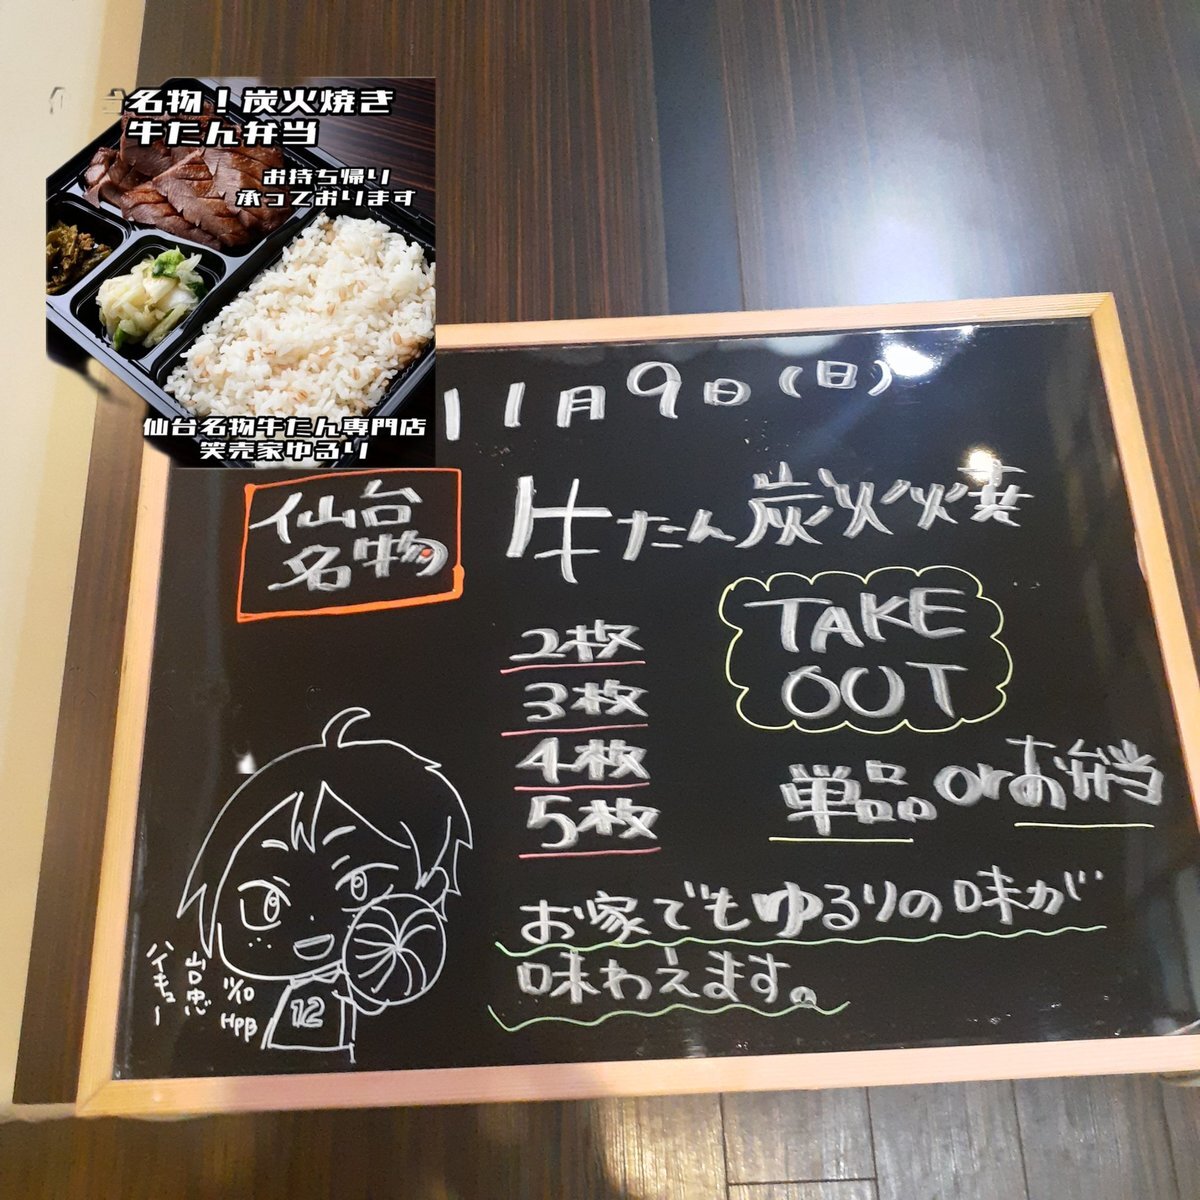 台名物！炭火焼き
牛たん弁当
お持ち帰り
承っております
仙台名物牛たん専門店
笑売家ゆるり
11月9日(日)
仙台
名物
牛たん炭火焼
TAKE
OUT
2枚
3枚
4枚
5枚
単品orお弁当
お家でもゆるりの味が
味わえます。
ハイキュー
山口忠
11/10
HPB
12